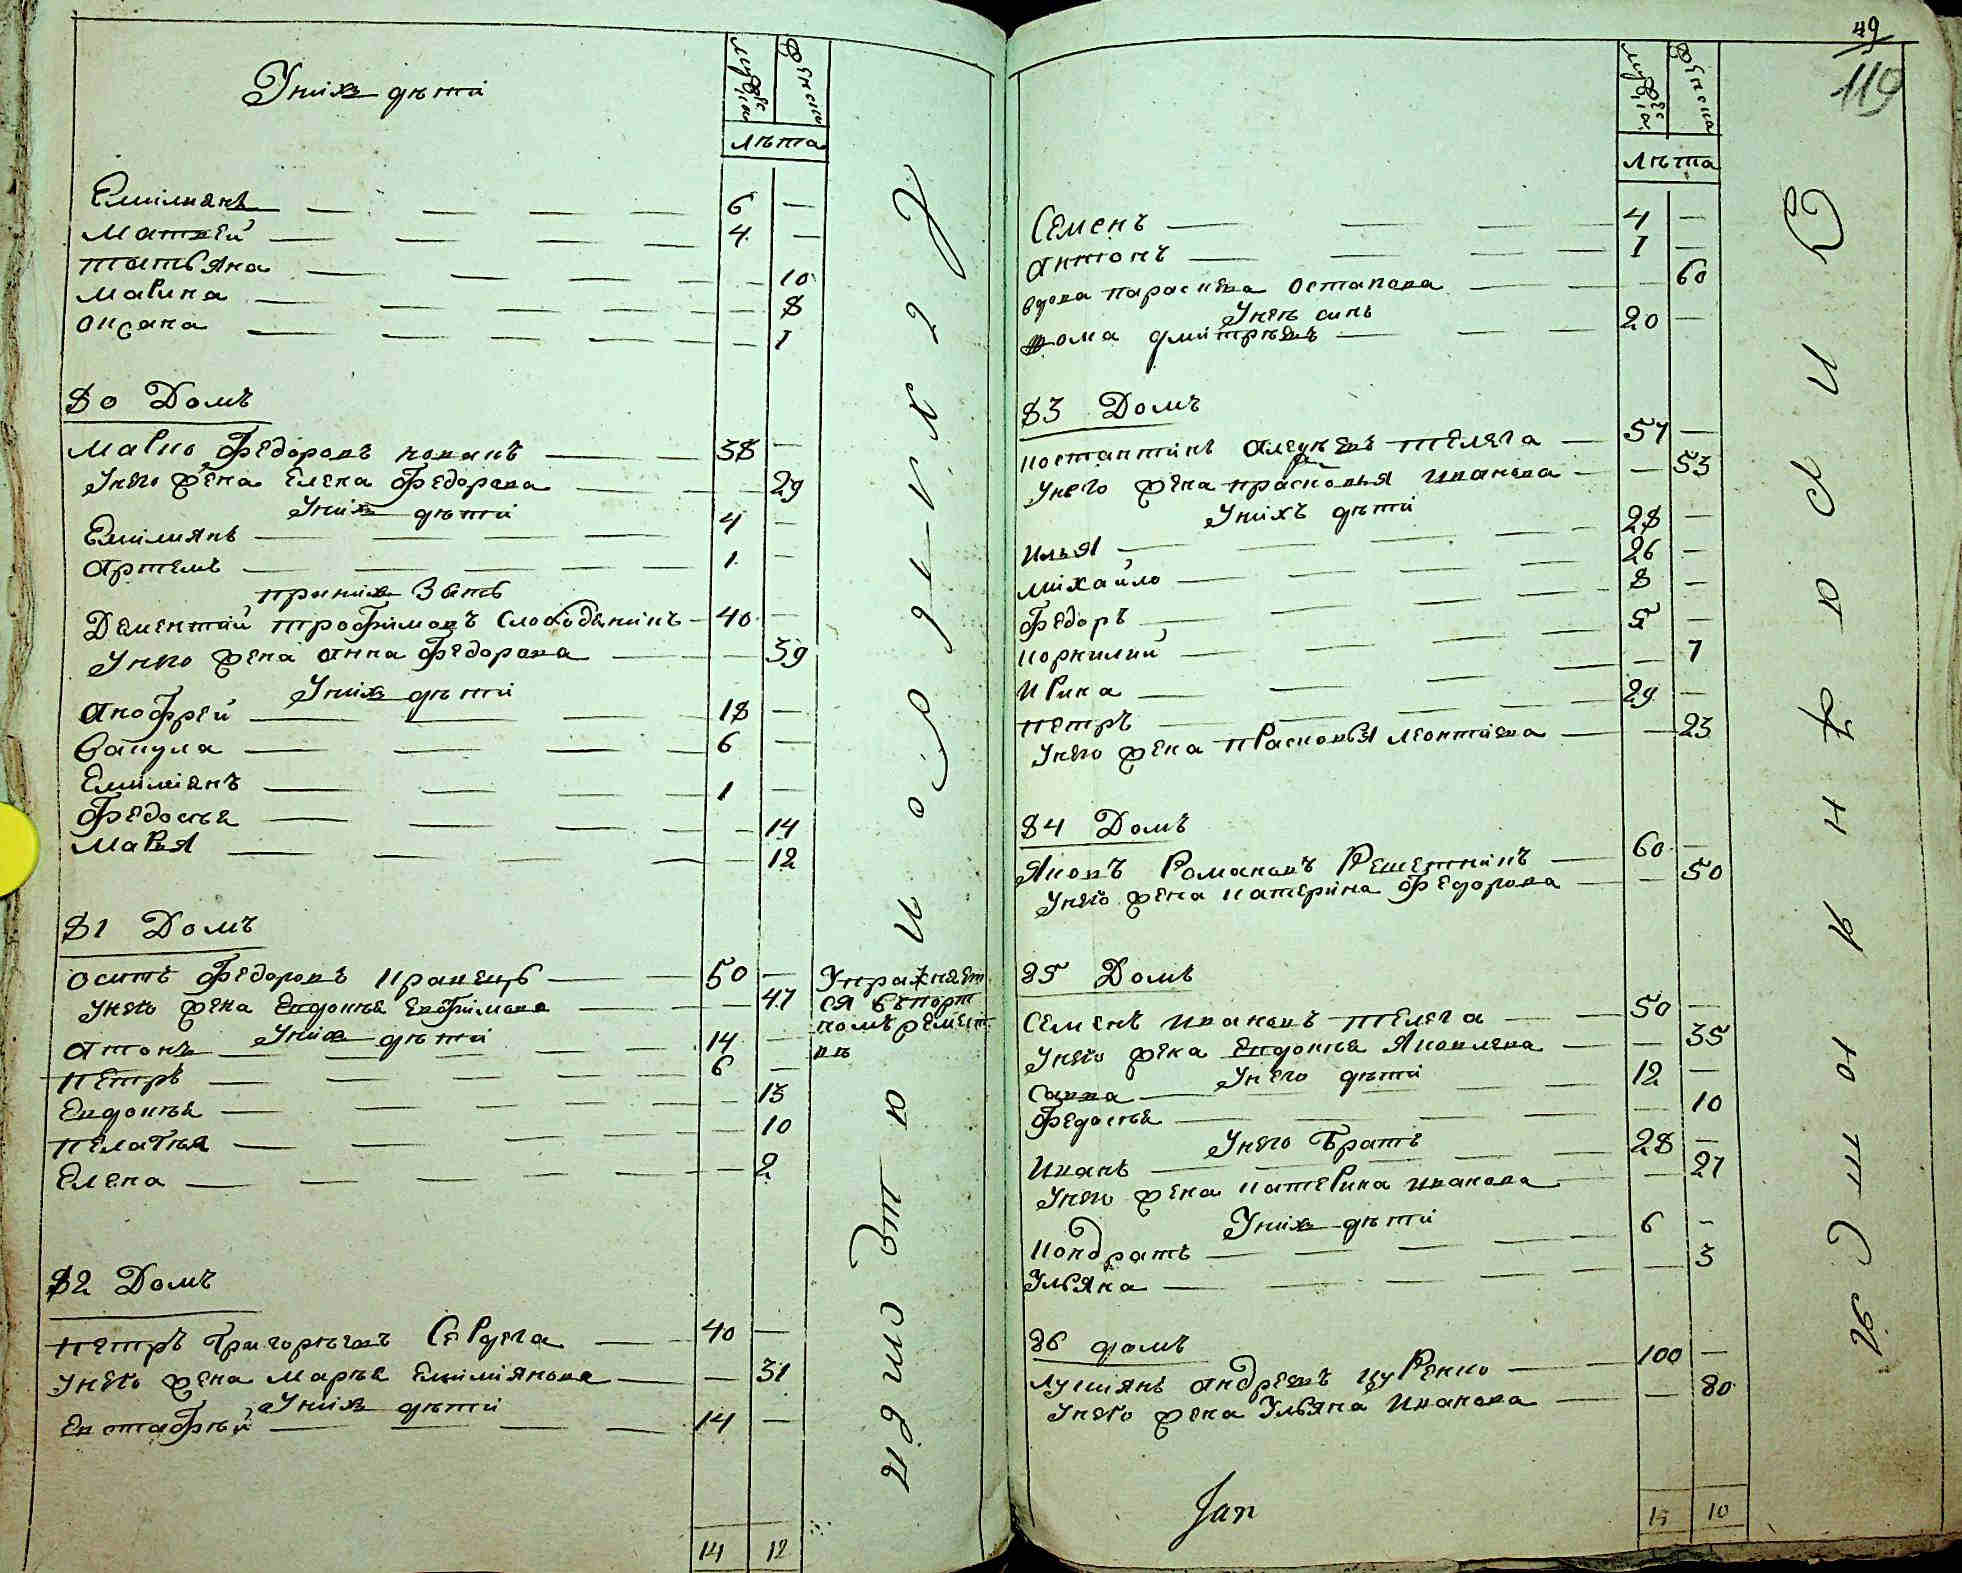 У нихъ дѣти
мужеска
женска
лѣта
Емилианъ — 6 —
Матвей — 4 —
Татьяна — 10
Марина — 8
Оксана — 1
80 Домъ
Марко Федоровъ коваль — 38 —
У него жена Елена Федорова — 29
У нихъ дѣти
Емилианъ — 4 —
Артемъ — 1 —
При нихъ зять
Дементий Трофимовъ Слободянинъ — 40 —
У него жена Анна Федорова — 39
У нихъ дѣти
Анофрей — 18 —
Вакула — 6 —
Емилианъ — 1
Федосья — 14
Марья — 12
81 Домъ
Осипъ Федоровъ Кравецъ — 50 —
У него жена Евдокия Евфимова — 47
У нихъ дѣти
Антонъ — 14 —
Петръ — 6 —
Евдокия — 13
Пелагия — 10
Елена — 2
Упражняет
ся въ порт
номъ ремест
вѣ
82 Домъ
Петръ Григорьевъ Сердега — 40 —
У него жена Марья Емилиянова — 31
У нихъ дѣти
Евстафий — 14 —
14 12
49
119
мужеска
женска
лѣта
Семенъ — 4 —
Антонъ — 1 —
вдова Параскева Остапова — 60
У ней синъ
Фома Дмитриевъ — 20 —
83 Домъ
Костантинъ Алексеевъ Телега — 57 —
У него жена Прасковья Иванова — 53
У нихъ дѣти
Илья — 28 —
Михайло — 26 —
Федоръ — 8 —
Корнилий — 5 —
Ирина — 7
Петръ — 29 —
У него жена Прасковья Леонтиева — 23
84 Домъ
Яковъ Романовъ Решетникъ — 60 —
У него жена Катерина Федорова — 50
85 Домъ
Семенъ Ивановъ Телега — 50 —
У него жена Евдокия Яковлева — 35
У него дѣти
Савва — 12 —
Федосья — 10
У него братъ
Иванъ — 28 —
У него жена Катерина Иванова — 27
У нихъ дѣти
Кондратъ — 6 —
Ульяна — 3
86 домъ
Лукиянъ Андреевъ Цуренко — 100 —
У него жена Ульяна Иванова — 80
10